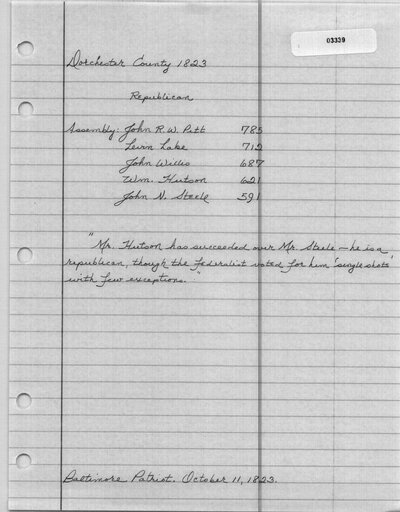 03339
Dorchester County 1823
Republican
Assembly: John R. W. Pitt 785
Levin Lake 712
John Willis 687
Wm. Hutson 621
John N. Steele 591
"Mr. Hutson has succeeded over Mr. Steele — he is a
republican, though the federalist voted for him 'single shots'
with few exceptions."
Baltimore Patriot. October 11, 1823.